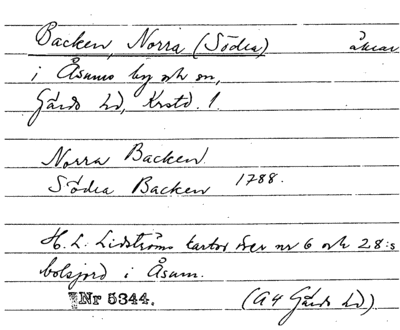 Backen, Norra (Södra) åkrar
i Åsums by och sn,
Gärds hd, Krstd. l.
Norra Backen
Södra Backen 1788.
H. L. Lidströms kartor över nr 6 och 28:s
bolsjord i Åsum.
Nr 5344. (A4 Gärds hd)